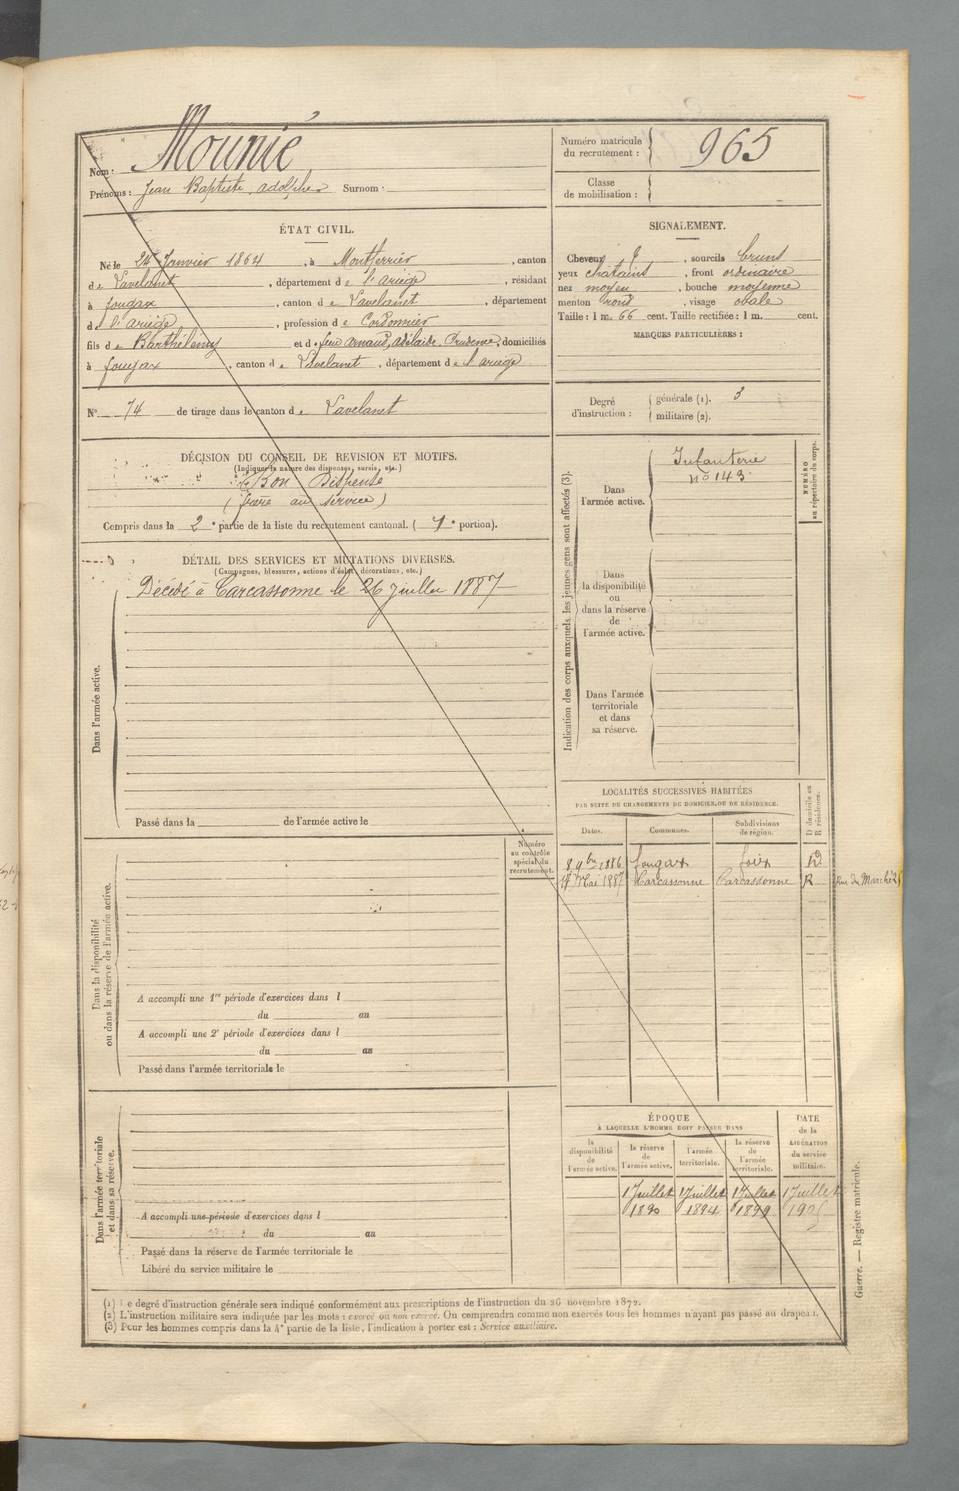 Nom : Mounié
Prénoms : Jean Baptiste adolphe Surnom :
Numéro matricule du recrutement : 965
Classe de mobilisation :
ÉTAT CIVIL.
Né le 24 Janvier 1864, à Montferrier, canton
de Lavelanet, département de l'ariège, résidant
à fougax, canton de Lavelanet, département
de l'ariège, profession de Cordonnier
fils de Barthélémy et de feue arnaud, adélaïde, Prudence, domiciliés
à fougax, canton de Lavelanet, département de l'ariège
N° 74 de tirage dans le canton de Lavelanet
SIGNALEMENT.
Cheveux, sourcils bruns
yeux chatains, front ordinaire
nez moyen, bouche moyenne
menton rond, visage ovale
Taille : 1 m. 66 cent. Taille rectifiée : 1 m. cent.
MARQUES PARTICULIÈRES :
Degré d'instruction : générale (1). 3
militaire (2).
DÉCISION DU CONSEIL DE REVISION ET MOTIFS.
(Indiquer la nature des dispenses, sursis, etc.)
Bon Dispensé
(frère au service)
Compris dans la 2e partie de la liste du recrutement cantonal. (1e portion).
DÉTAIL DES SERVICES ET MUTATIONS DIVERSES.
(Campagnes, blessures, actions d'éclat, décorations, etc.)
Dans l'armée active.
Décédé à Carcassonne le 26 Juillet 1887
Passé dans la de l'armée active le
Indication des corps auxquels les jeunes gens sont affectés (3).
NUMÉRO au répertoire du corps.
Dans l'armée active.
Infanterie
n° 143
Dans la disponibilité ou dans la réserve de l'armée active.
Dans l'armée territoriale et dans sa réserve.
LOCALITÉS SUCCESSIVES HABITÉES
PAR SUITE DE CHANGEMENTS DE DOMICILE OU DE RÉSIDENCE.
Dates. Communes. Subdivisions de région. D domicile ou R résidence.
8 9bre 1886 fougax foix D
17 Mai 1887 Carcassonne Carcassonne R Rue du Marché 25
Numéro au contrôle spécial du recrutement.
Dans la disponibilité ou dans la réserve de l'armée active.
A accompli une 1re période d'exercices dans l
du au
A accompli une 2e période d'exercices dans l
du au
Passé dans l'armée territoriale le
Dans l'armée territoriale et dans sa réserve.
A accompli une période d'exercices dans l
du au
Passé dans la réserve de l'armée territoriale le
Libéré du service militaire le
ÉPOQUE
À LAQUELLE L'HOMME DOIT PASSER DANS
la disponibilité de l'armée active. la réserve de l'armée active. l'armée territoriale. la réserve de l'armée territoriale. DATE de la LIBÉRATION du service militaire.
1 Juillet 1 Juillet 1 Juillet 1 Juillet
1890 1894 1899
Guerre. — Registre matricule.
(1) Le degré d'instruction générale sera indiqué conformément aux prescriptions de l'instruction du 26 novembre 1872.
(2) L'instruction militaire sera indiquée par les mots : exercé ou non exercé. On comprendra comme non exercés tous les hommes n'ayant pas passé au drapeau.
(3) Pour les hommes compris dans la 4e partie de la liste, l'indication à porter est : Service auxiliaire.